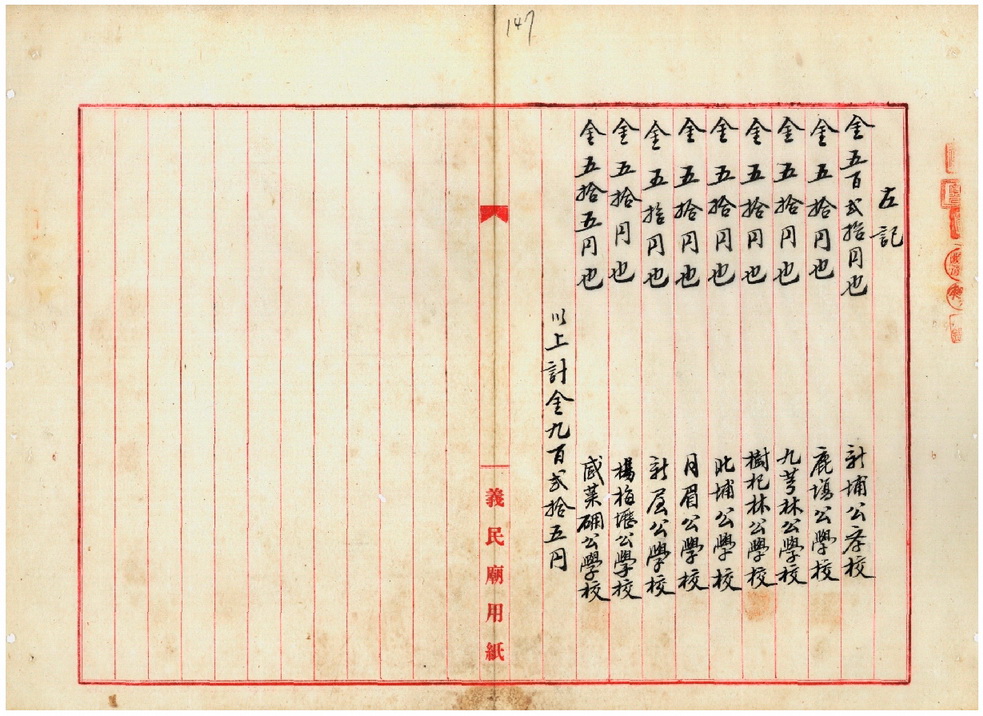 147
左記
金五百弍拾円也 新埔公学校
金五拾円也 鹿塲公學校
金五拾円也 九芎林公學校
金五拾円也 樹杞林公學校
金五拾円也 北埔公學校
金五拾円也 月眉公學校
金五拾円也 新屋公學校
金五拾円也 楊梅壢公學校
金五拾五円也 咸菜硼公學校
以上計金九百弍拾五円
義民廟用紙